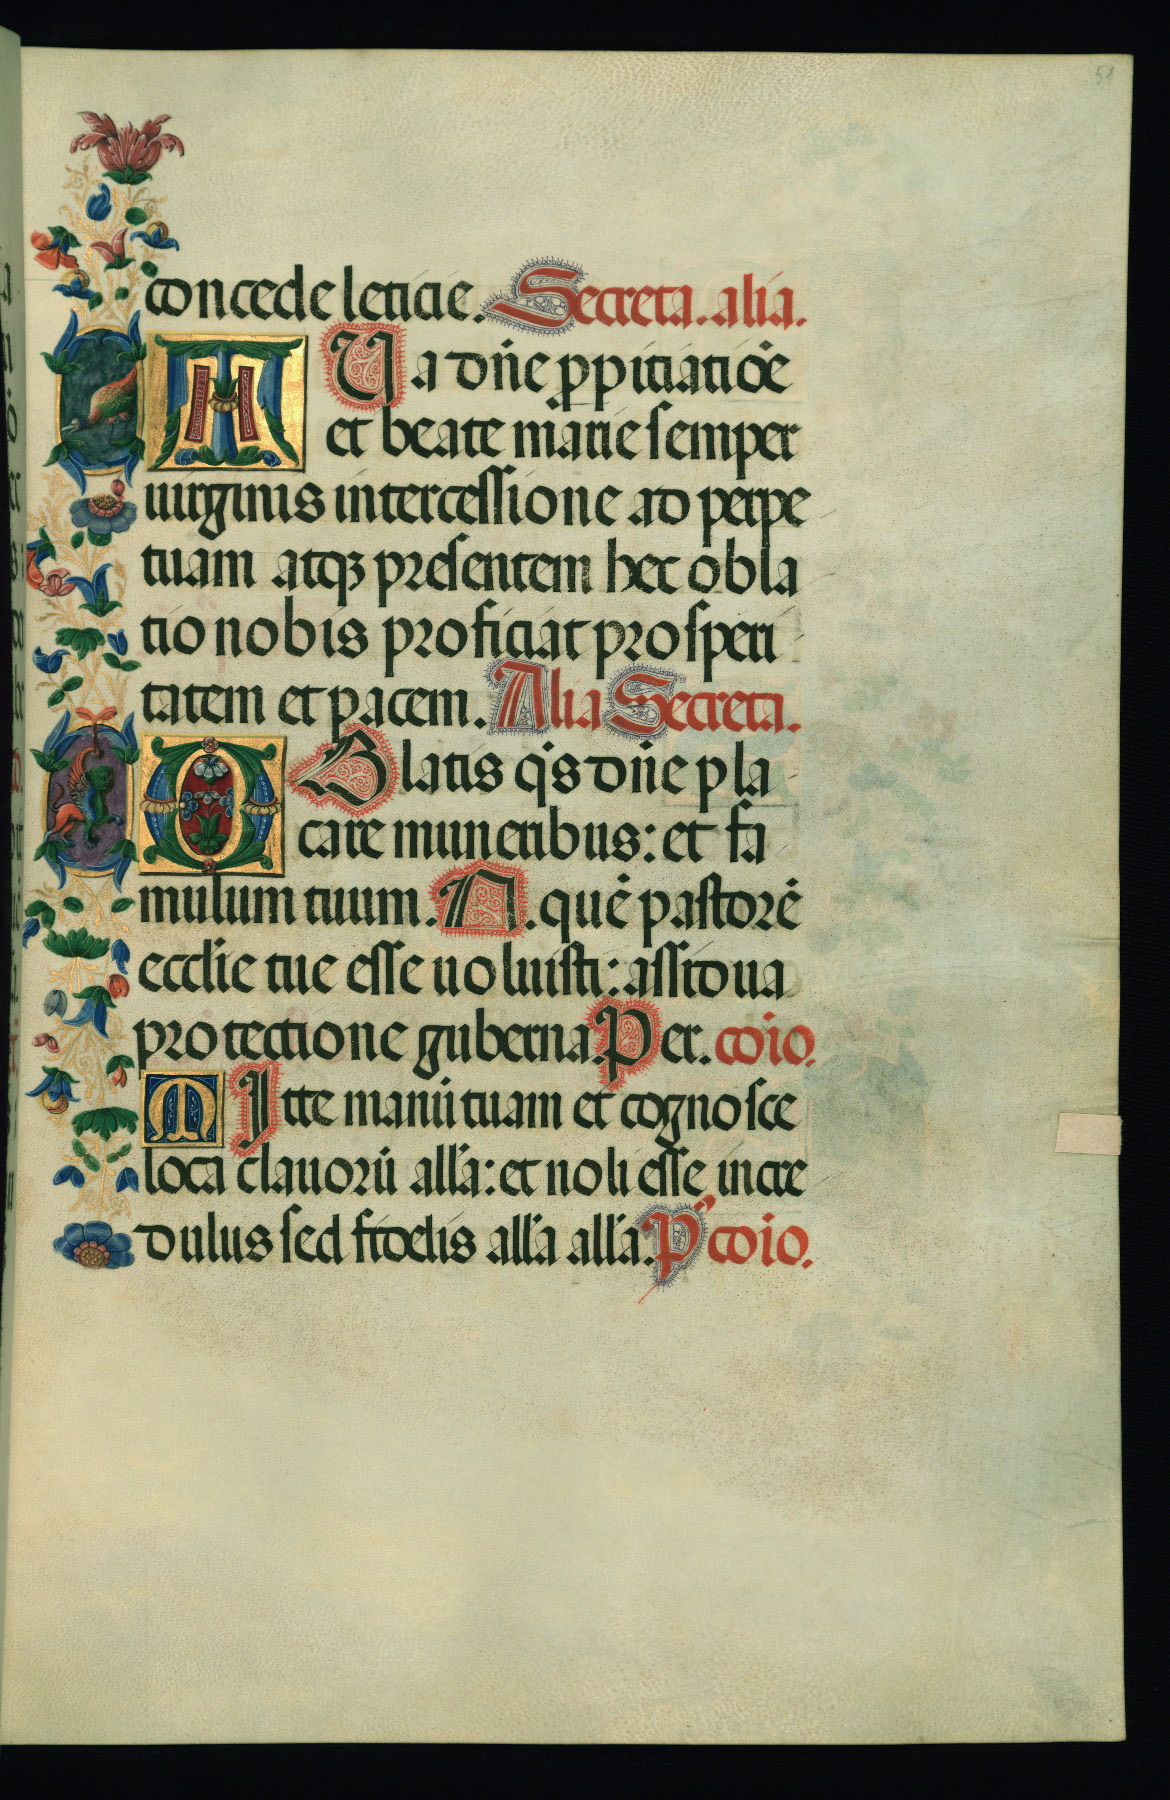 51
concede leticie. Secreta. alia.
TUa dn̄e p̱pitiatiōe
et beate marie semper
uirginis intercessione ad perpe
tuam atqꝫ presentem hec obla
tio nobis proficiat prosperi
tatem et pacem. Alia Secreta.
OBlatis q̄s dn̄e pla
care muneribus: et fa
mulum tuum. N. quē pastorē
ecclie tue esse uoluisti: assidua
protectione guberna. Per. cōio.
MItte manū tuam et cognosce
loca clauorū alla: et noli esse incre
dulus sed fidelis alla alla. P' cōio.